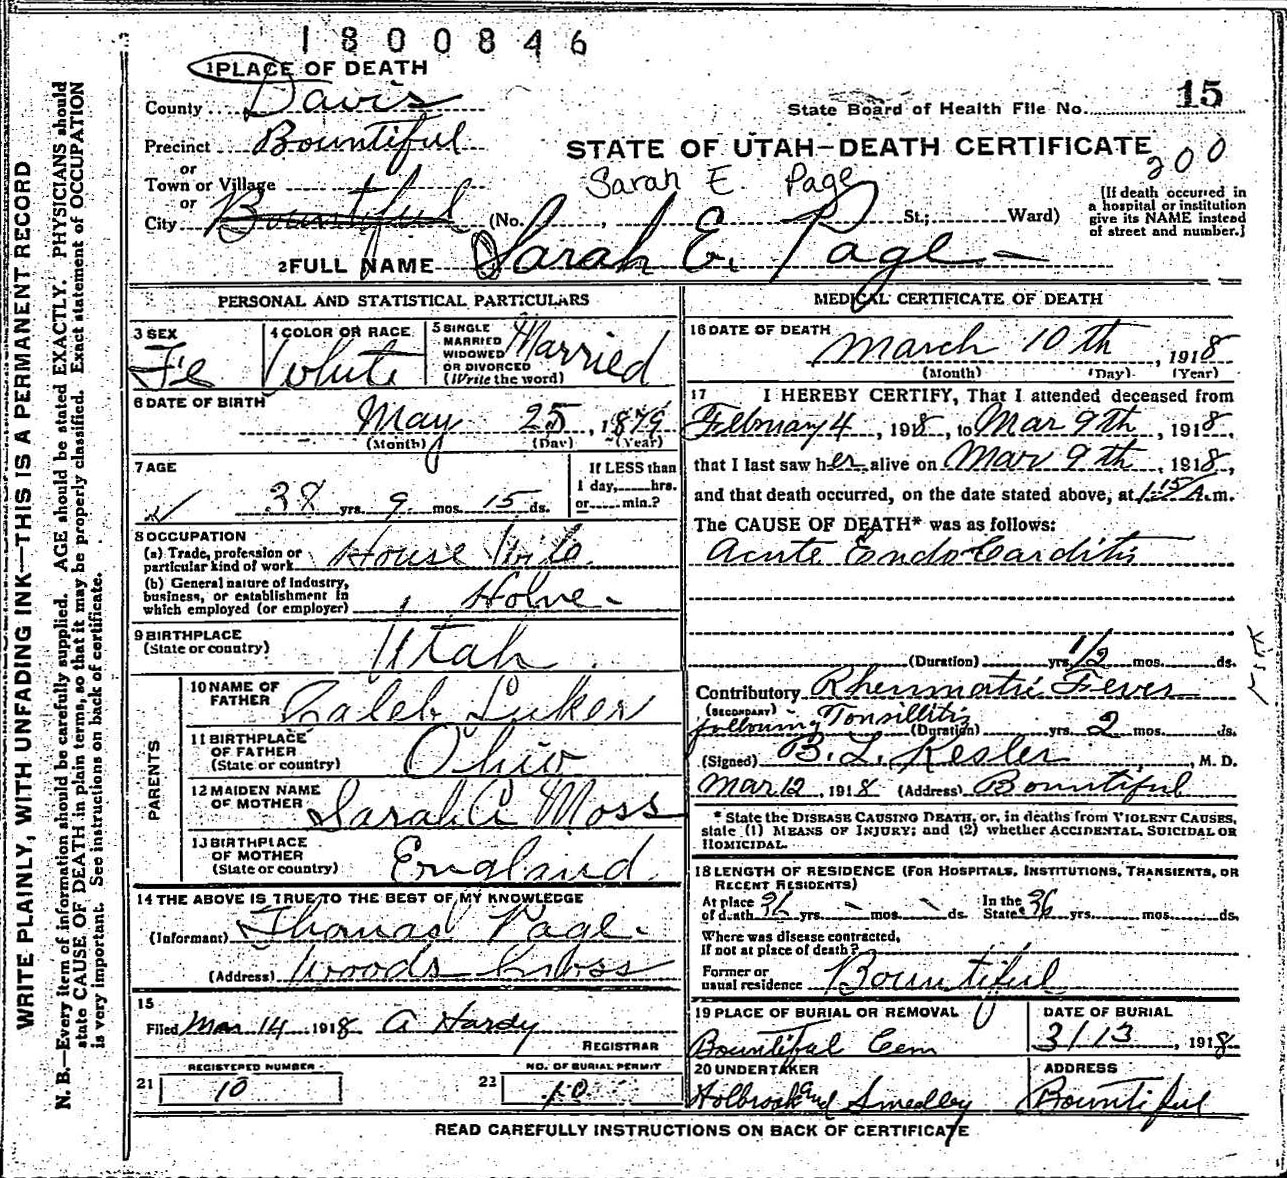 1800846
1 PLACE OF DEATH
County Davis
State Board of Health File No. 15
Precinct Bountiful
STATE OF UTAH—DEATH CERTIFICATE
200
or
Town or Village
Sarah E. Page
or
City Bountiful (No. , St.; Ward)
(If death occurred in
a hospital or institution
give its NAME instead
of street and number.]
2 FULL NAME Sarah E. Page
PERSONAL AND STATISTICAL PARTICULARS
3 SEX
Fe
4 COLOR OR RACE
White
5 SINGLE
MARRIED
WIDOWED
OR DIVORCED
(Write the word)
Married
6 DATE OF BIRTH
May 25, 1879
(Month) (Day) (Year)
7 AGE
38 yrs. 9 mos. 15 ds.
If LESS than
1 day, hrs.
or min.?
8 OCCUPATION
(a) Trade, profession or
particular kind of work House Wife
(b) General nature of Industry,
business, or establishment in
which employed (or employer) Home
9 BIRTHPLACE
(State or country) Utah
PARENTS
10 NAME OF
FATHER Caleb Luker
11 BIRTHPLACE
OF FATHER
(State or country) Ohio
12 MAIDEN NAME
OF MOTHER Sarah A Moss
13 BIRTHPLACE
OF MOTHER
(State or country) England
14 THE ABOVE IS TRUE TO THE BEST OF MY KNOWLEDGE
(Informant) Thomas Page
(Address) Woods Cross
15
Filed Mar 14 1918 A Hardy
REGISTRAR
REGISTERED NUMBER
21 10
NO. OF BURIAL PERMIT
22 10
MEDICAL CERTIFICATE OF DEATH
16 DATE OF DEATH
March 10th, 1918
(Month) (Day) (Year)
17 I HEREBY CERTIFY, That I attended deceased from
February 4, 1918, to Mar 9th, 1918,
that I last saw her alive on Mar 9th, 1918,
and that death occurred, on the date stated above, at 1:15 A.m.
The CAUSE OF DEATH* was as follows:
Acute Endo Carditis
(Duration) yrs. 1/2 mos. ds.
Contributory Rheumatic Fever
(SECONDARY)
following Tonsillitis
(Duration) yrs. 2 mos. ds.
(Signed) B. L. Kesler, M. D.
Mar 12, 1918 (Address) Bountiful
* State the DISEASE CAUSING DEATH, or, in deaths from VIOLENT CAUSES,
state (1) MEANS OF INJURY; and (2) whether ACCIDENTAL, SUICIDAL OR
HOMICIDAL.
18 LENGTH OF RESIDENCE (FOR HOSPITALS, INSTITUTIONS, TRANSIENTS, OR
RECENT RESIDENTS)
At place
of death 36 yrs. - mos. - ds.
In the
State 36 yrs. mos. ds.
Where was disease contracted,
If not at place of death?
Former or
usual residence Bountiful
19 PLACE OF BURIAL OR REMOVAL
Bountiful Cem
DATE OF BURIAL
3/13, 1918
20 UNDERTAKER
Holbrook and Smedley
ADDRESS
Bountiful
READ CAREFULLY INSTRUCTIONS ON BACK OF CERTIFICATE
WRITE PLAINLY, WITH UNFADING INK—THIS IS A PERMANENT RECORD
N. B.—Every item of information should be carefully supplied. AGE should be stated EXACTLY. PHYSICIANS should
state CAUSE OF DEATH in plain terms, so that it may be properly classified. Exact statement of OCCUPATION
is very important. See instructions on back of certificate.